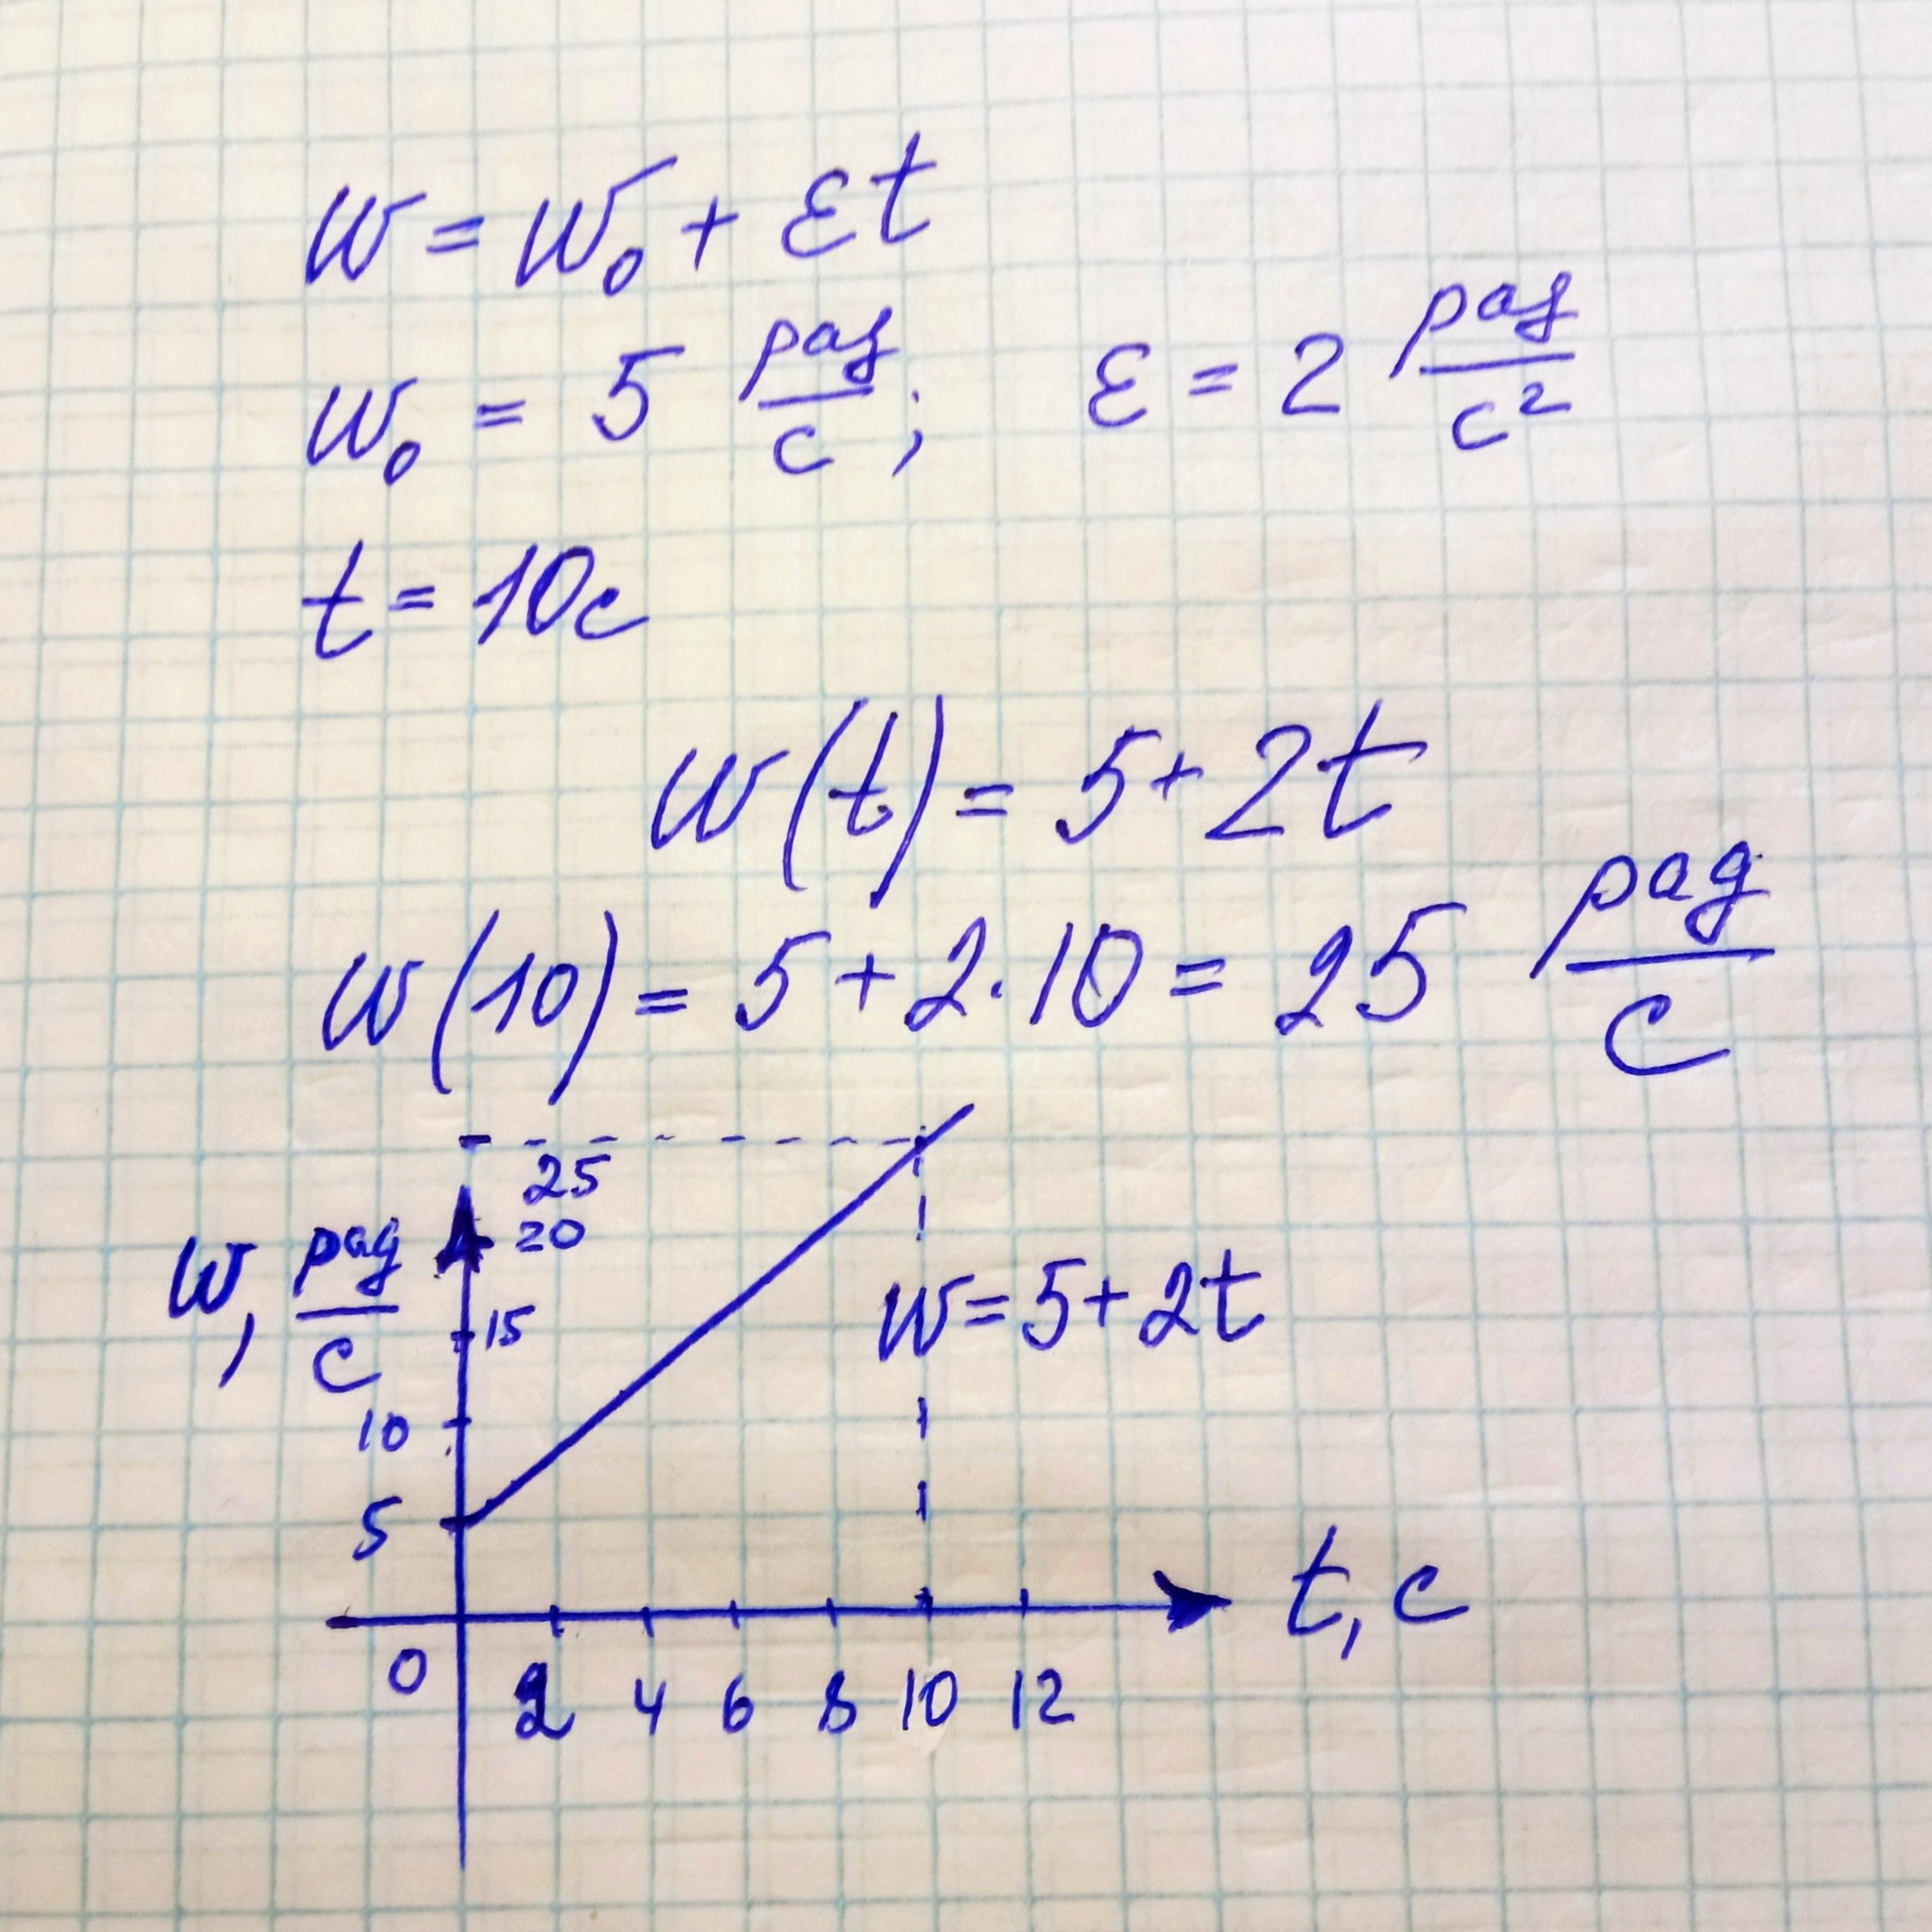 ω = ω₀ + εt
ω₀ = 5 рад/с; ε = 2 рад/с²
t = 10с
ω(t) = 5 + 2t
ω(10) = 5 + 2·10 = 25 рад/с
25
20
ω, рад/с
15
ω = 5 + 2t
10
5
t, с
0 2 4 6 8 10 12